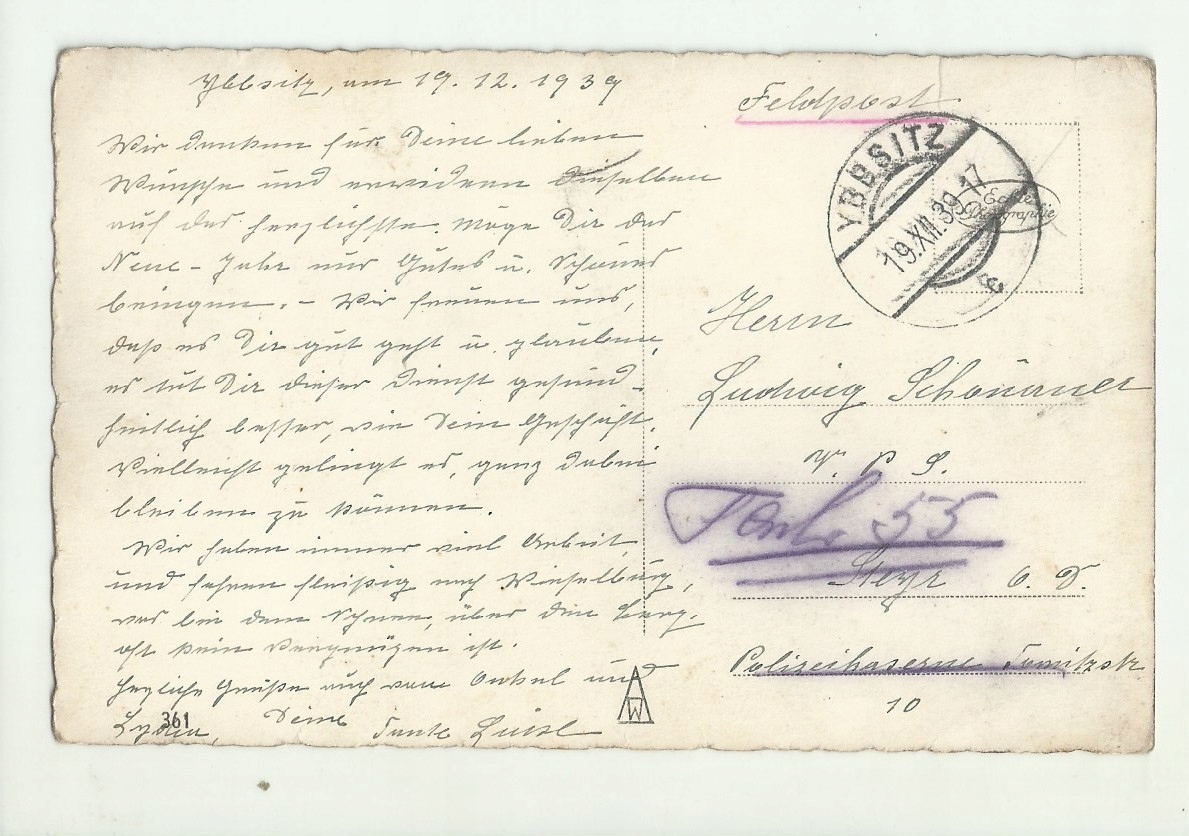 Ybbsitz, am 19. 12. 1939
Wir danken für Deine lieben
Wünsche und erwidern dieselben
auf das herzlichste. Möge Dir das
Neue-Jahr nur Gutes u. Schönes
bringen. – Wir freuen uns,
daß es Dir gut geht u. glauben,
es tut Dir dieser Dienst gesund-
heitlich besser, wie Dein Geschäft.
Vielleicht gelingt es, ganz dabei
bleiben zu können.
Wir haben immer viel Arbeit
und fahren fleißig nach Wieselburg,
was bei dem Schnee, über den Berg,
oft kein Vergnügen ist.
Herzliche Grüße auch vom Onkel und
Deine
Tante Luisl
361
AW
Feldpost
YBBSITZ
19.XII.39-17
e
Echte
Photographie
Herrn
Ludwig
55
Steyr O. D.
Polizeikaserne
10